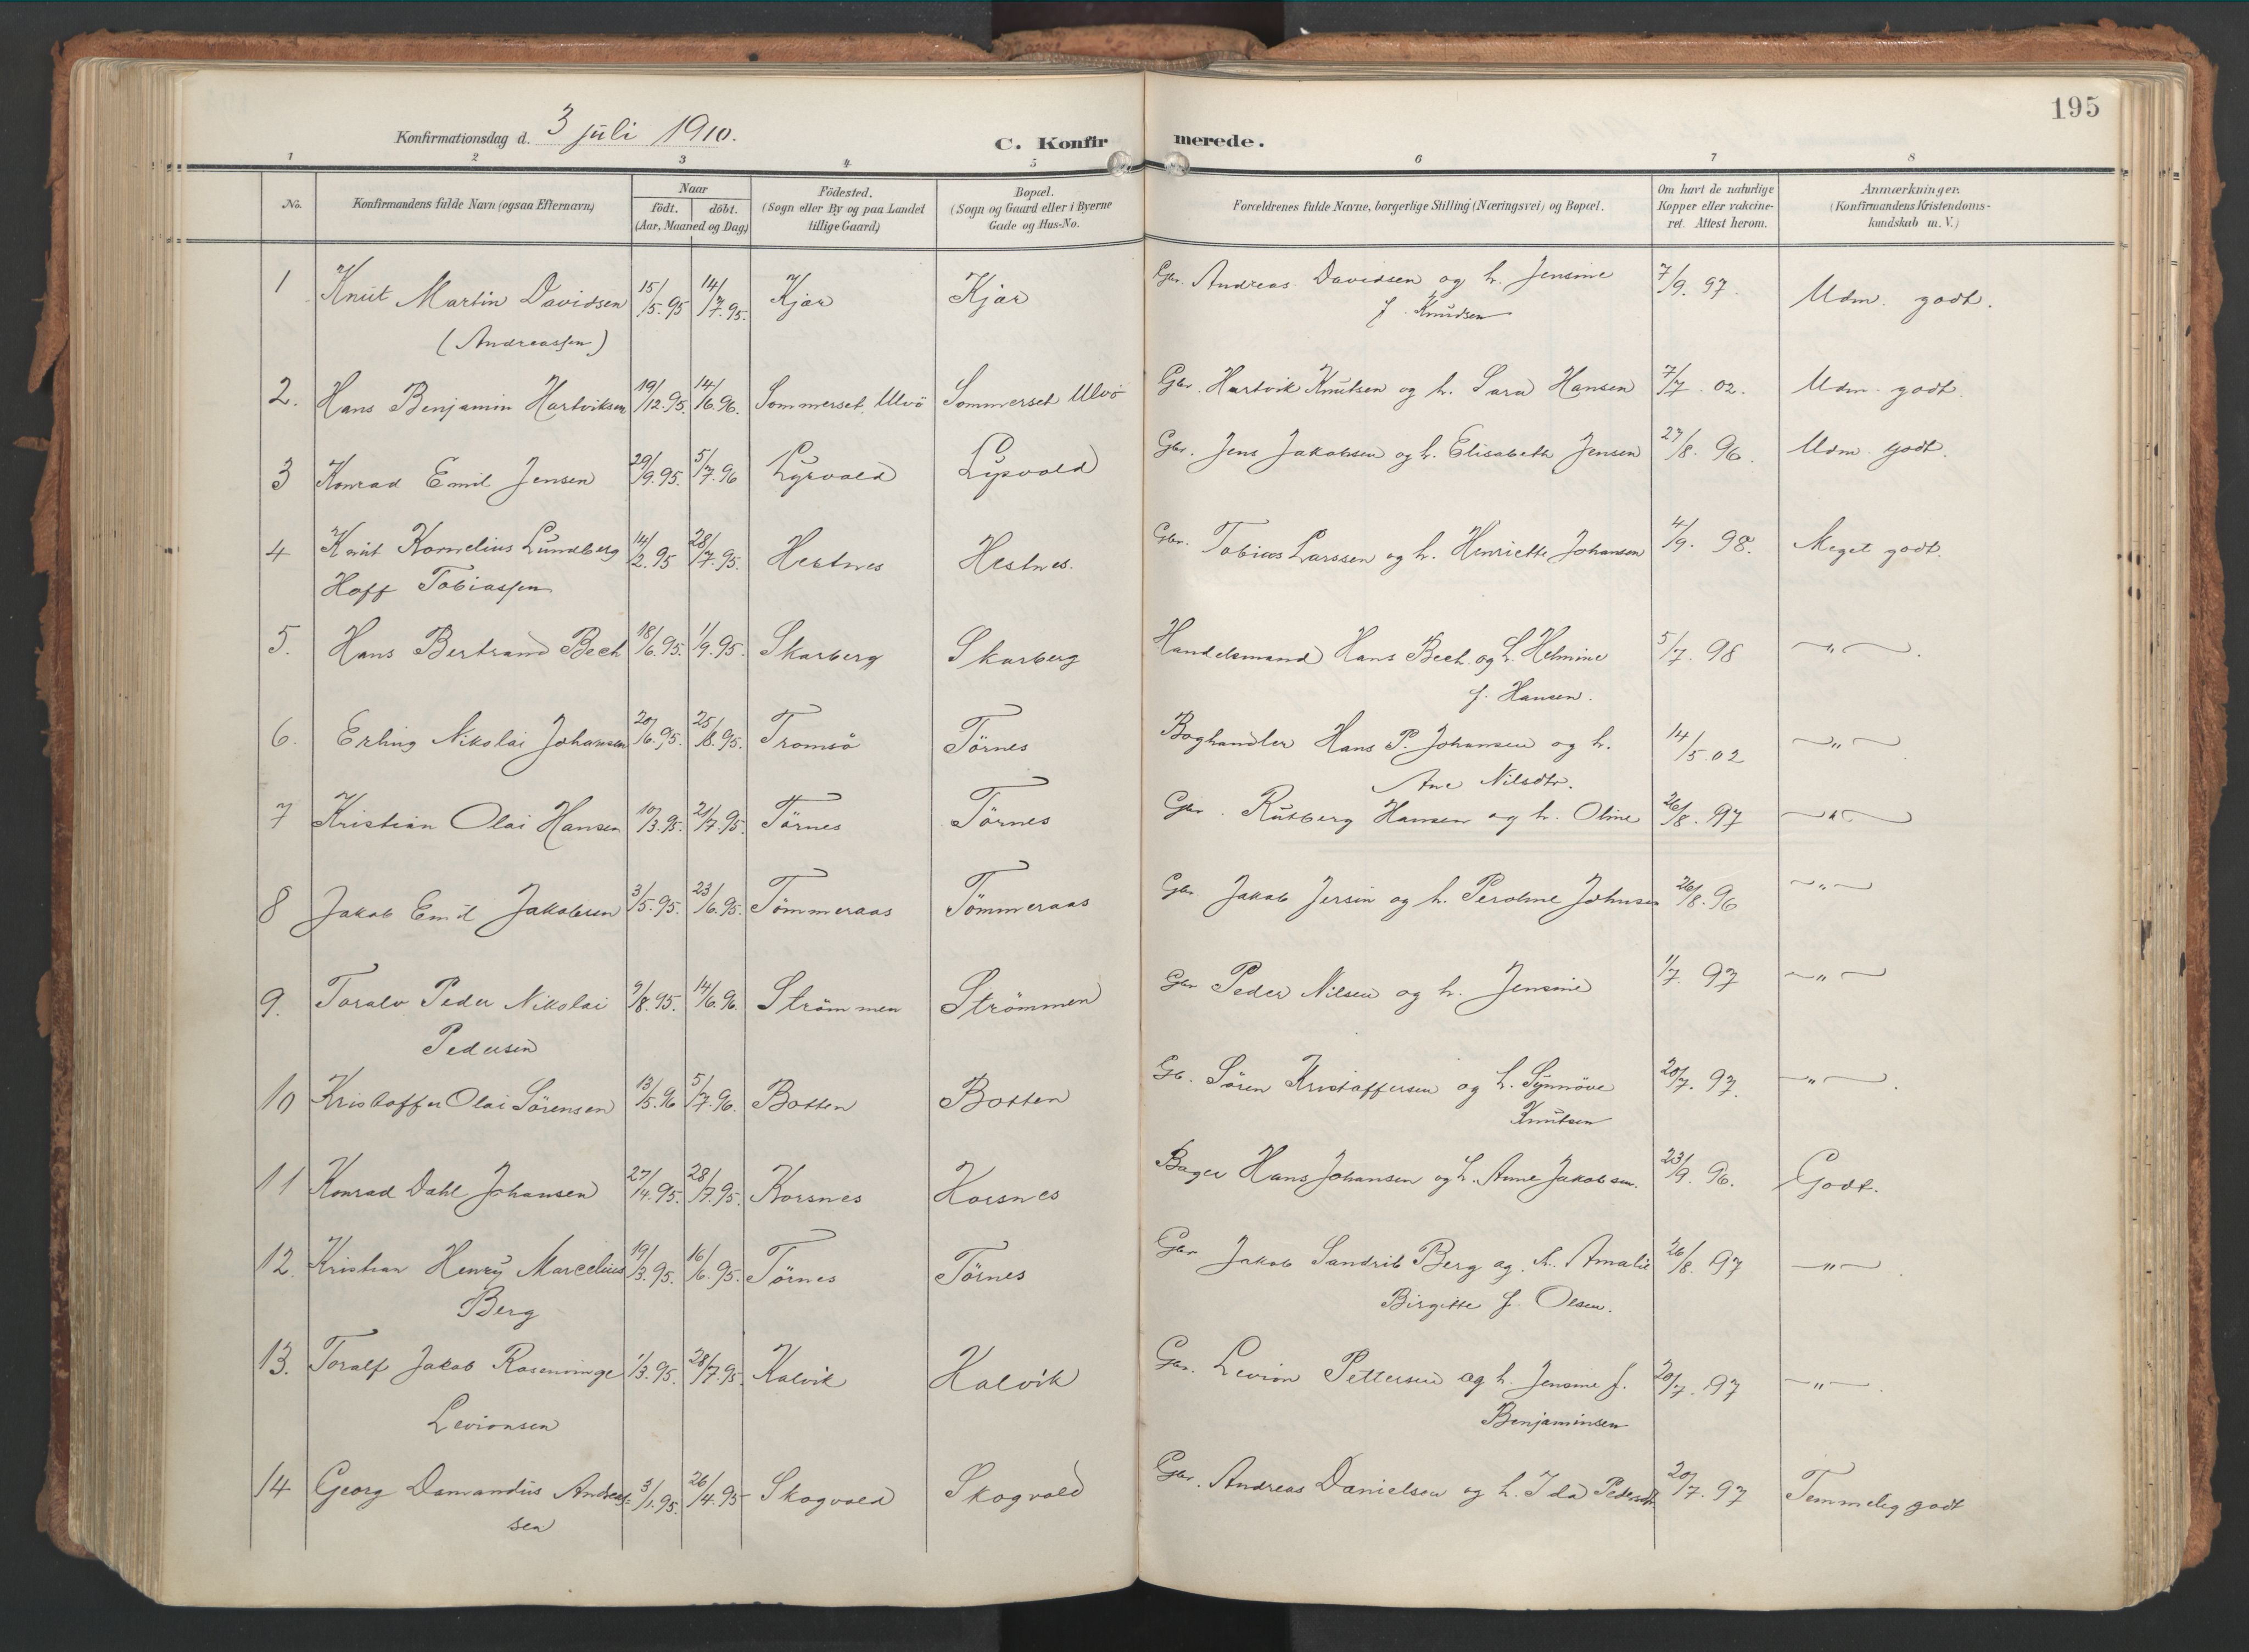 195
Konfirmationsdag d. 3 juli 1910.
C. Konfirmerede.
1 2 3 4 5 6 7 8
No. Konfirmandens fulde Navn (ogsaa Efternavn) Naar födt. döbt. (Aar, Maaned og Dag) Födested. (Sogn eller By og paa Landet tillige Gaard) Bopæl. (Sogn og Gaard eller i Byerne Gade og Hus-No. Forældrenes fulde Navne, borgerlige Stilling (Næringsvei) og Bopæl. Om havt de naturlige Kopper eller vakcineret. Attest herom. Anmærkninger. (Konfirmandens Kristendomskundskab m. V.)
1 Knut Martin Davidsen 15/5.95 14/7.95. Kjær Kjær Gbr. Andreas Davidsen og h. Jensine 7/9.97. Udm. godt.
(Andreassen) f. Knudsen
2. Hans Benjamin Hartviksen 19/12.95. 14/6.96. Sommerset, Ulvö Sommerset Ulvö Gbr. Hartvik Knutsen og h. Sara Hansen 7/7.02. Udm. godt.
3 Konrad Emil Jensen 29/9.95. 5/7.96 Lysvold Lysvold Gbr. Jens Jakobsen og h. Elisabeth Jensen 27/8.96. Udm. godt.
4 Knut Kornelius Lundberg 14/2.95 28/7.95. Hestnes Hestnes. Gbr. Tobias Larssen og h. Henriette Johansen 4/9.98. Meget godt.
Hoff Tobiassen
5. Hans Bertrand Bech 18/6.95. 1/9.95. Skarberg Skarberg Handelsmand Hans Bech og h. Helmine 5/7.98 — " —.
f. Hansen.
6. Erling Nikolai Johansen 20/6.95. 25/8.95. Tromsö Törnes Boghandler Hans P. Johansen og h. 14/5.02 — " —
Ane Nilsdtr.
7 Kristian Olai Hansen 10/3.95. 21/7.95. Törnes Törnes Gbr. Rutberg Hansen og h. Oline 26/8.97 — " —
8 Jakob Emil Jakobsen 3/5.95. 23/6.95. Tömmeraas Tömmeraas Gbr. Jakob Jersin og h. Peroline Johnsen 26/8.96 — " —
9. Toralv Peder Nikolai 9/8.95. 14/6.96. Strömmen Strömmen Gbr Peder Nilsen og h. Jensine 1/7.97 — " —
Pedersen
10 Kristoffer Olai Sörensen 13/5.96 5/7.96. Botten Botten Gb. Sören Kristoffersen og h. Synnöve 20/7.97. — " —.
Knutsen
11 Konrad Dahl Johansen 27/4.95. 28/7.95. Korsnes Korsnes Bager Hans Johansen og h. Anne Jakobsen. 23/9.96. Godt.
12. Kristian Henry Marcelius 19/3.95. 16/6.95. Törnes Törnes Gbr Jakob Sandrib Berg og h. Amalie 26/8.97 — " —.
Berg Birgitte f. Olsen.
13. Toralf Jakob Rosenvinge 1/3.95. 28/7.95. Kalvik Kalvik Gbr. Levion Pettersen og h. Jensine f. 20/7.97 — " —.
Levionsen Benjaminsen
14 Georg Damandus Andreas= 3/1.95. 26/4.95 Skogvold Skogvold Gbr. Andreas Danielsen og h. Ida Pedersdtr. 20/7.97 Temmelig godt
sen